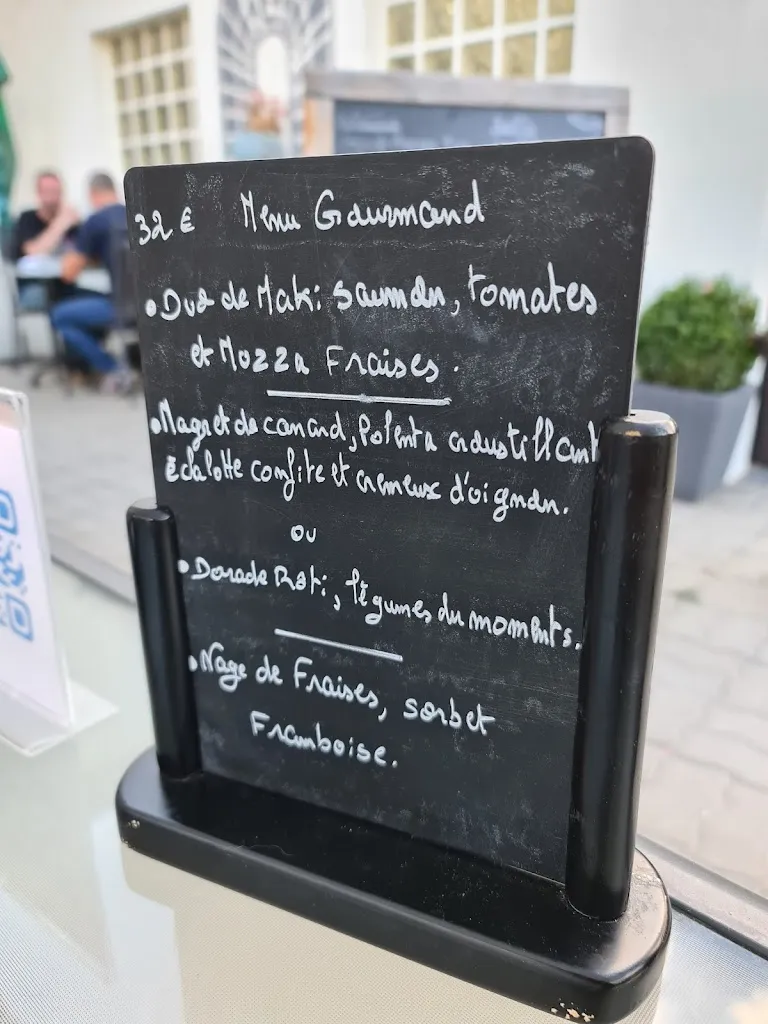 32 € Menu Gourmand
• Duo de Maki: Saumon, tomates
et Mozza Fraises.
• Magret de canard, Polenta croustillant
échalotte confite et cremeux d'oignon.
ou
• Dorade Roti, légumes du moments.
• Nage de Fraises, sorbet
Framboise.